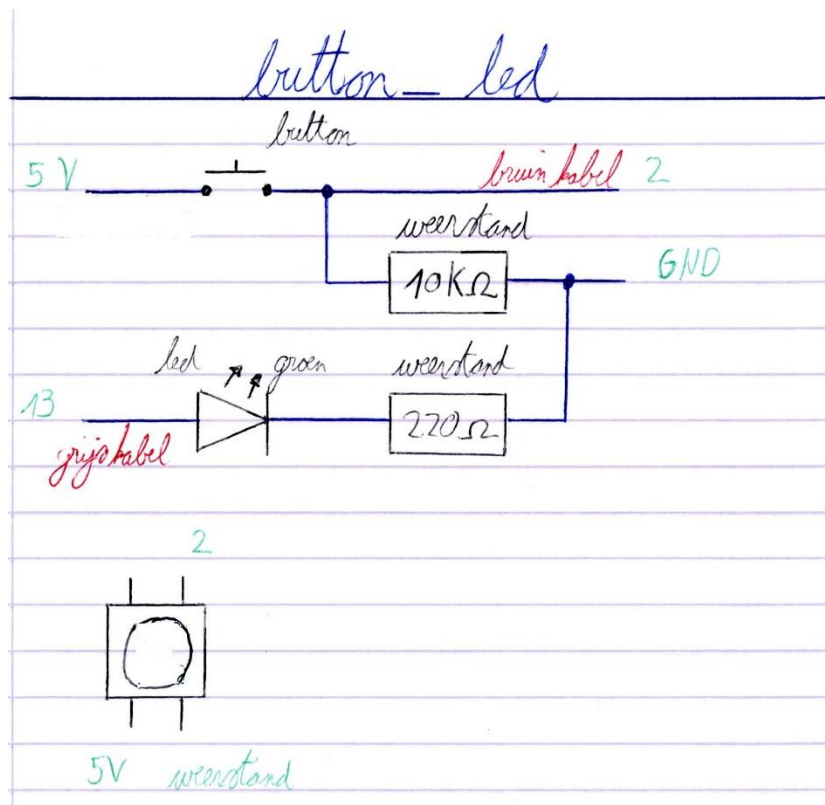 button_ led
button
5V bruin kabel 2
weerstand
10KΩ GND
led groen weerstand
13 220Ω
grijs kabel
2
5V weerstand